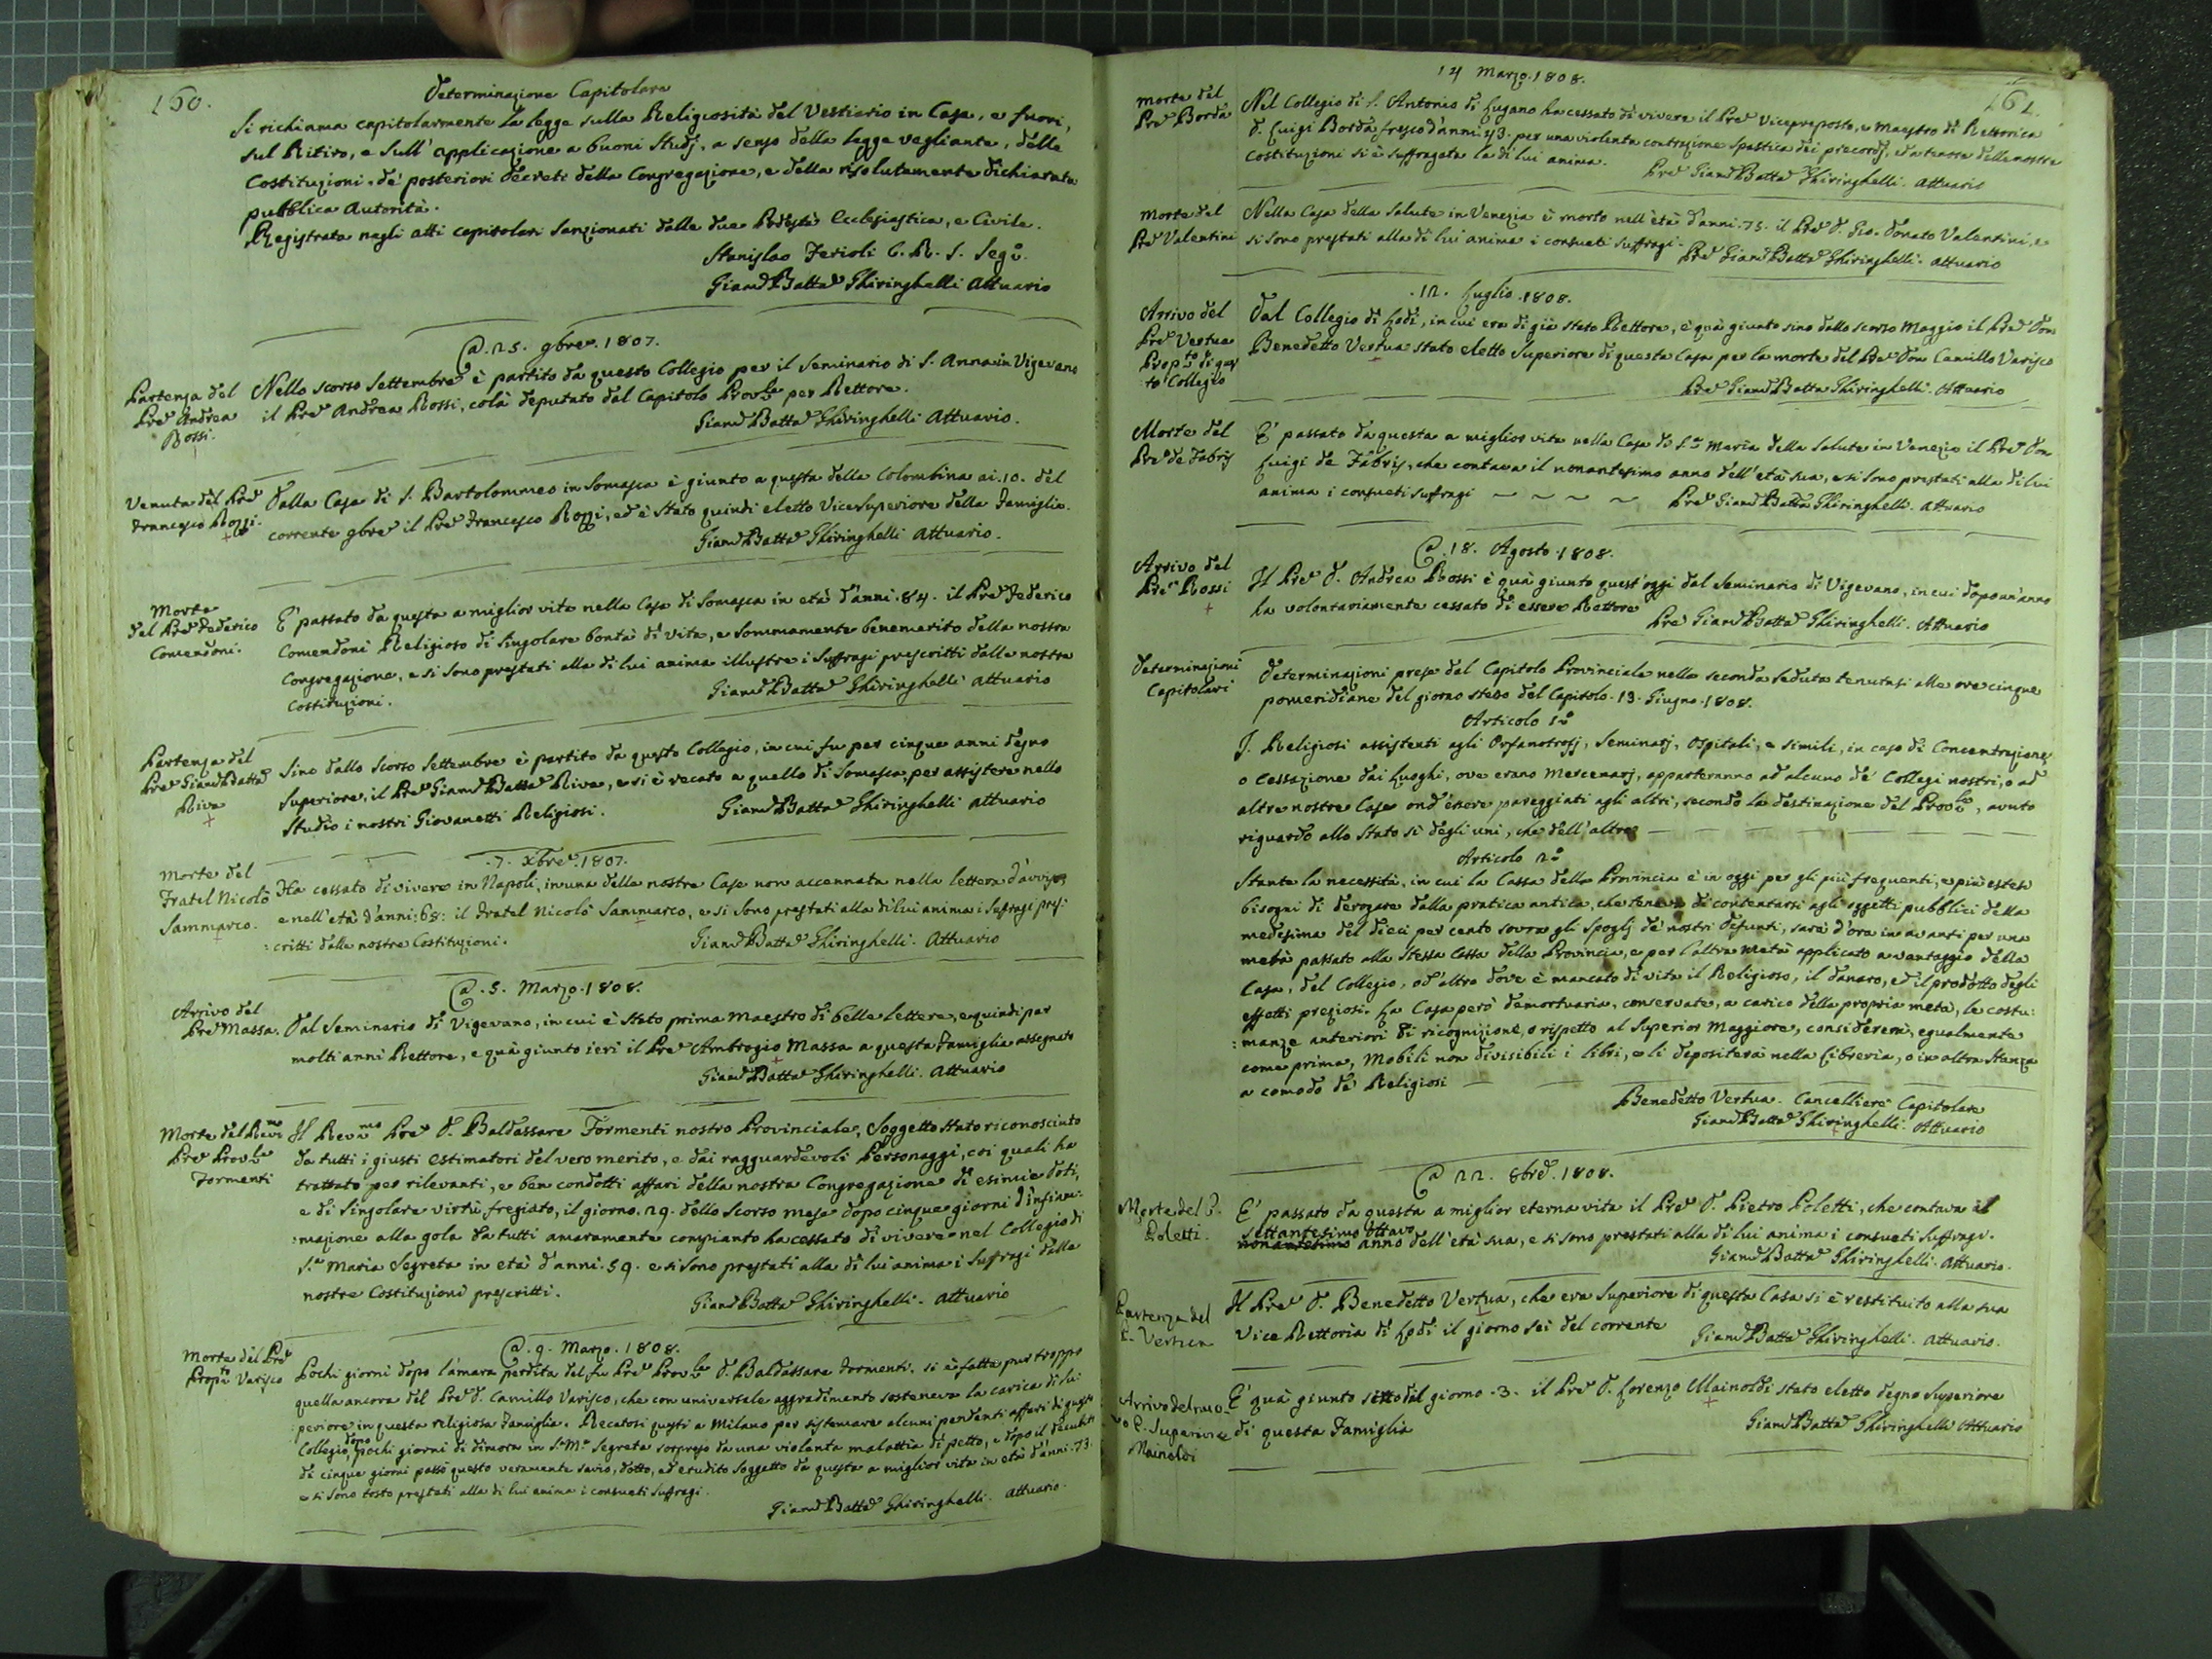 160.
Determinazione Capitolare
Si richiama capitolarmente la legge sulla Religiosità del Vestiario in Casa, e fuori,
sul Ritiro, e sull' applicazione a buoni Studj, a senso della legge vegliante, delle
Costituzioni, de' posteriori decreti della Congregazione, e della risolutamente dichiarata
pubblica Autorità.
Registrata negli atti capitolari sanzionati dalle due Podestà Ecclesiastica, e Civile.
Stanislao Ferioli C. R. S. Segr.o
Giam Batta Ghiringhelli Attuario
@. 25. 9bre. 1807.
Partenza del
Pre Andrea
Rossi.
Nello scorso Settembre è partito da questo Collegio per il Seminario di S. Anna in Vigevano
il Pre Andrea Rossi, colà deputato dal Capitolo Provle per Rettore.
Giam Batta Ghiringhelli Attuario.
Venuta del Pre
Francesco Rozzi.
Dalla Casa di S. Bartolommeo in Somasca è giunto a questa della Colombina ai. 10. del
corrente 9bre il Pre Francesco Rozzi, ed è stato quindi eletto ViceSuperiore della Famiglia.
Giam Batta Ghiringhelli Attuario.
Morte
del Pre Federico
Comendoni.
E' passato da questa a miglior vita nella Casa di Somasca in età d'anni. 84. il Pre Federico
Comendoni Religioso di singolare bontà di vita, e sommamente benemerito della nostra
Congregazione, e si sono prestati alla di lui anima illustre i Suffragi prescritti dalle nostre
Costituzioni.
Giam Batta Ghiringhelli Attuario
Partenza del
Pre Giam Batta
Riva
Sino dallo scorso Settembre è partito da questo Collegio, in cui fu per cinque anni degno
Superiore, il Pre Giam Batta Riva, e si è recato a quello di Somasca per assistere nello
Studio i nostri Giovanetti Religiosi.
Giam Batta Ghiringhelli Attuario
. 7. Xbre. 1807.
Morte del
Fratel Nicolò
Sammarco.
Ha cessato di vivere in Napoli, in una delle nostre Case non accennata nella lettera d'avviso,
e nell'età d'anni: 68: il Fratel Nicolò Sammarco, e si sono prestati alla di lui anima i Suffragi pres:
:critti dalle nostre Costituzioni.
Giam Batta Ghiringhelli. Attuario
@. 5. Marzo. 1808.
Arrivo del
Pre Massa.
Dal Seminario di Vigevano, in cui è stato prima Maestro di belle lettere, e quindi per
molti anni Rettore, e quà giunto ieri il Pre Ambrogio Massa a questa Famiglia assegnato
Giam Batta Ghiringhelli. Attuario
Morte del Revmo
Pre Provle
Formenti
Il Revmo Pre D. Baldassare Formenti nostro Provinciale, Soggetto stato riconosciuto
da tutti i giusti estimatori del vero merito, e dai ragguardevoli Personaggi, coi quali ha
trattato per rilevanti, e ben condotti affari della nostra Congregazione di esimie doti,
e di singolare virtù fregiato, il giorno. 29. dello scorso mese dopo cinque giorni d'infiam:
:mazione alla gola da tutti amaramente compianto ha cessato di vivere nel Collegio di
S.a Maria Segreta in età d'anni. 59. e si sono prestati alla di lui anima i Suffragi dalle
nostre Costituzioni prescritti.
Giam Batta Ghiringhelli. Attuario
@. 9. Marzo. 1808.
Morte del Pre
Propto Varisco
Pochi giorni dopo l'amara perdita del fu Pre Provle D. Baldassare Formenti, si è fatta pur troppo
quella ancora del Pre D. Camillo Varisco, che con universale aggradimento sosteneva la carica di Su:
:periore in questa religiosa Famiglia. Recatosi questi a Milano per sistemare alcuni pendenti affari di questo
Collegio, dopo pochi giorni di dimora in S.a M.a Segreta sorpreso da una violenta malattia di petto, e dopo il decubito
di cinque giorni passò questo veramente savio, dotto, ed erudito Soggetto da questa a miglior vita in età d'anni. 73.
e si sono tosto prestati alla di lui anima i consueti Suffragi.
Giam Batta Ghiringhelli. Attuario.
161.
14 Marzo. 1808.
Morte del
Pre Borda
Nel Collegio di S. Antonio di Lugano ha cessato di vivere il Pre Vicepreposto, e Maestro di Rettorica
D. Luigi Borda fresco d'anni. 43. per una violenta contrazione spastica dei precordj, ed a tenore delle nostre
Costituzioni si è suffragata la di lui anima.
Pre Giam Batta Ghiringhelli. Attuario
Morte del
Pre Valentini
Nella Casa della Salute in Venezia è morto nell'età d'anni. 75. il Pre D. Gio. Donato Valentini, e
si sono prestati alla di lui anima i consueti Suffragi.
Pre Giam Batta Ghiringhelli. Attuario
. 12. Luglio. 1808.
Arrivo del
Pre Vertua
Propto di ques
to Collegio
Dal Collegio di Lodi, in cui era di già stato Rettore, è quà giunto sino dallo scorso Maggio il Pre Don
Benedetto Vertua stato eletto Superiore di questa Casa per la morte del Pre Don Camillo Varisco
Pre Giam Batta Ghiringhelli. Attuario
Morte del
Pre de Fabris
E' passato da questa a miglior vita nella Casa di S.a Maria della Salute in Venezia il Pre Don
Luigi de Fabris, che contava il nonantesimo anno dell'età sua, e si sono prestati alla di lui
anima i consueti suffragi
Pre Giam Batta Ghiringhelli. Attuario
@. 18. Agosto. 1808.
Arrivo del
Pre Rossi
Il Pre D. Andrea Rossi è quà giunto quest'oggi dal Seminario di Vigevano, in cui dopo un'anno
ha volontariamente cessato di essere Rettore
Pre Giam Batta Ghiringhelli. Attuario
Determinazioni
Capitolari
Determinazioni prese dal Capitolo Provinciale nella seconda seduta tenutasi alle ore cinque
pomeridiane del giorno stesso del Capitolo. 13. Giugno. 1808.
Articolo 1o
I. Religiosi assistenti agli Orfanotrofj, Seminarj, Ospitali, e simili, in caso di Concentrazione,
o Cessazione dai Luoghi, ove erano Mercenarj, apparteranno ad alcuno de' Collegi nostri, o ad
altre nostre Case ond'essere pareggiati agli altri, secondo la destinazione del Provle, avuto
riguardo allo Stato sì degli uni, che dell'altre
Articolo 2o
Stante la necessità, in cui la Cassa della Provincia è in oggi per gli più frequenti, e più estesi
bisogni di derogare dalla pratica antica, che teneva di contentarsi agli oggetti pubblici della
medesima del dieci per cento sovra gli Spoglj de' nostri Defunti, sarà d'ora in avanti per una
metà passato alla stessa Cassa della Provincia, e per l'altra metà applicato a vantaggio della
Casa, del Collegio, od'altro dove è mancato di vita il Religioso, il danaro, ed il prodotto degli
effetti preziosi. La Casa però demortuaria, conservate, a carico della propria metà, le costu:
:manze anteriori di ricognizione, o rispetto al Superior Maggiore, considererà, egualmente
come prima, Mobili non divisibili i libri, e li depositerà nella Libreria, o in altra Stanza
a comodo de' Religiosi
Benedetto Vertua. Cancelliere Capitolare
Giam Batta Ghiringhelli. Attuario
@ 22. 8bre. 1808.
Morte del P.
Poletti.
E' passato da questa a miglior eterna vita il Pre D. Pietro Poletti, che contava il
settantesimo ottavo
nonantesimo anno dell'età sua, e si sono prestati alla di lui anima i consueti Suffragi.
Giam Batta Ghiringhelli. Attuario.
Partenza del
P. Vertua
Il Pre D. Benedetto Vertua, che era Superiore di questa Casa si è restituito alla sua
Vice Rettoria di Lodi il giorno sei del corrente
Giam Batta Ghiringhelli. Attuario.
Arrivo del nuo
vo P. Superiore
Mainoldi
E' quà giunto sino dal giorno. 3. il Pre D. Lorenzo Mainoldi stato eletto degno Superiore
di questa Famiglia
Giam Batta Ghiringhelli Attuario